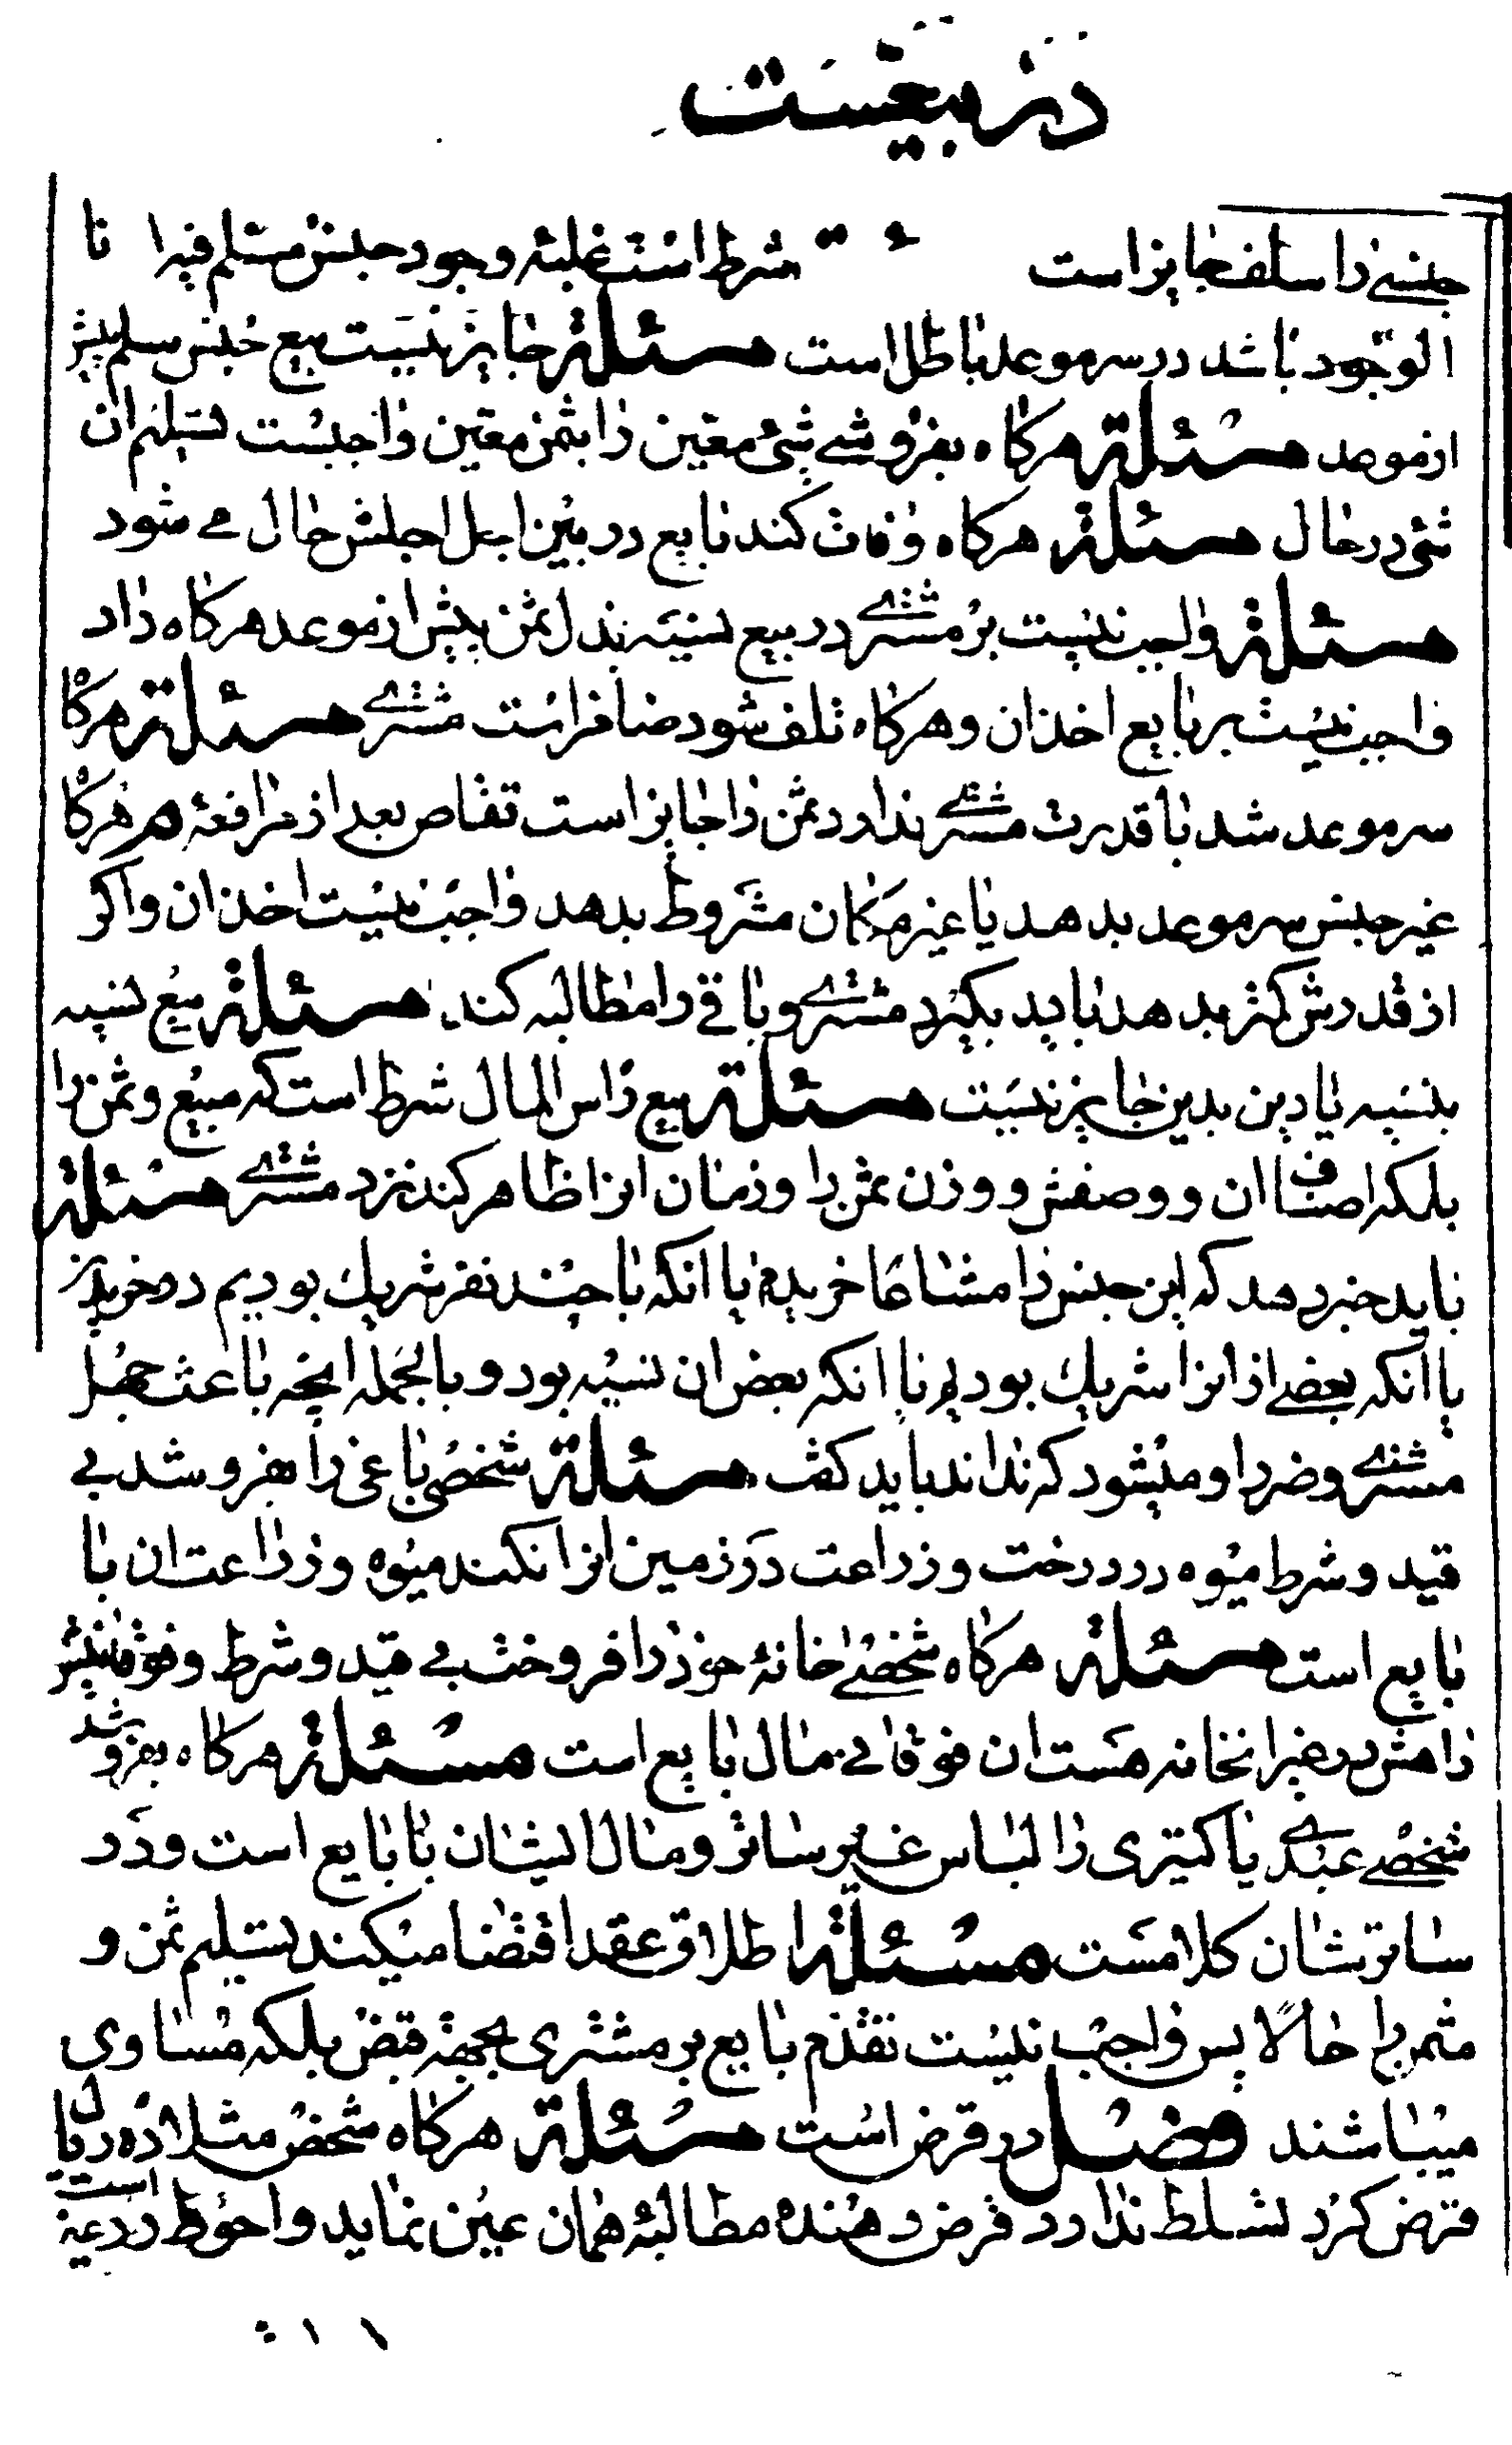 در بیعست
جنسی را سلف جایز است شرط است غلبهٔ وجود جنس مسلم فیه را نا
الوجود باشد در سر موعد باطل است مسئلة جایز نیست بیع جنس سلم پیش
از موعد مسئلة هرکاه بفروشے شئ معین را بثمن معین واجبست تسلیم ان
شئ در حال مسئلة هرکاه وفات کند بایع در بین اجل اجلش حال مے شود
مسئلة واجب نیست بر مشترے در بیع نسیه بذل ثمن پیش از موعد هرکاه داد
واجب نیست بر بایع اخذ ان و هرکاه تلف شود ضامن است مشترے مسئلة هرکاه
سر موعد شد با قدرت مشترے ندارد ثمن را جایز است تقاص بعد از مرافعهٔ هرکاه
غیر جنس سر موعد بدهد یا غیر مکان مشروط بدهد واجب نیست اخذ ان واکر
از قدرش کمتر بدهد باید بکیرد مشترے و باقے را مطالبه کند مسئلة بیع نسیه
بنسیه یا دین بدین جایز نیست مسئلة بیع راس المال شرط است که مبیع و ثمن را
بلکه اصناف ان و وصفش و وزن ثمن را و زمان انرا ظاهر کند نزد مشترے مسئلة
باید خبر دهد که این جنس را مشاعا خریدم یا انکه با چند نفر شریك بودیم در خریدن
یا انکه بعضے از انرا شریك بودیم یا انکه بعض ان نسیه بود و بالجمله انچه باعث جهل
مشترے و ضرر او میشود که نداند باید کفت مسئلة شخصی باغی را بفروشد بے
قید و شرط میوه در درخت و زراعت در زمین انرا نکند میوه و زراعت ان با
بایع است مسئلة هرکاه شخصے خانهٔ خود را فروخت بے قید و شرط و فوقانیش
راهش در غیر انخانه هست ان فوقانے مال بایع است مسئلة هرکاه بفروشد
شخصے عبدے یا کنیزی را لباس غیر ساتر و مال ایشان با بایع است و در
ساترشان کلامست مسئلة اطلاق عقد اقتضا میکند تسلیم ثمن و
مثمن را حالا پس واجب نیست تقدم بایع بر مشتری بجهة قبض بلکه مساوی
میباشند فصل در قرض است مسئلة هرکاه شخص مثلا ده ریال
قرض کرد تسلط ندارد قرض دهنده مطالبهٔ همان عین نماید و احوط در غیر است